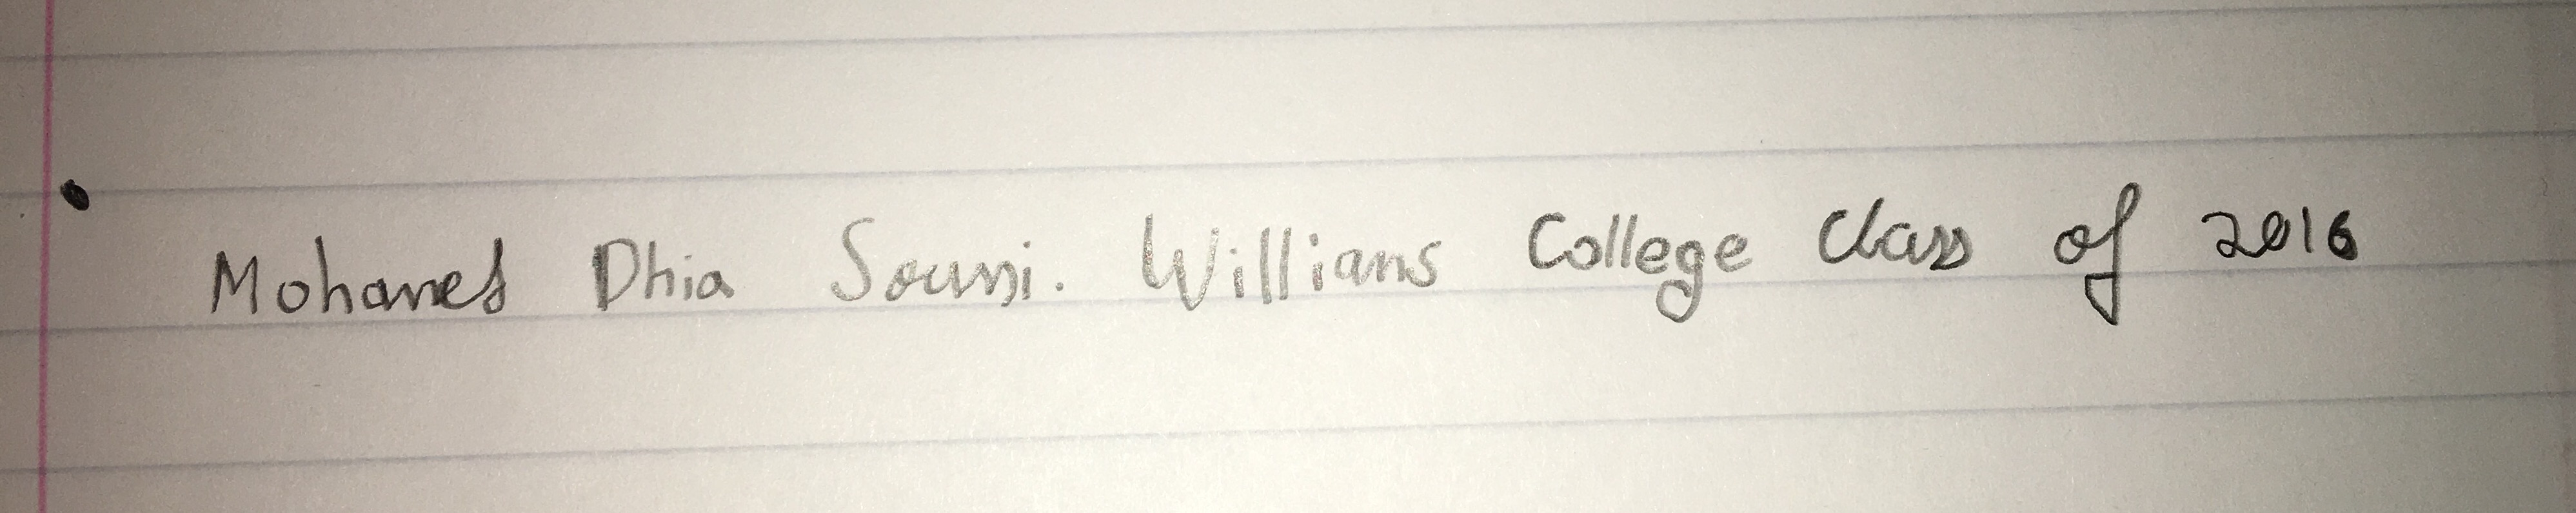 Mohamed Dhia Soussi. Williams College Class of 2016